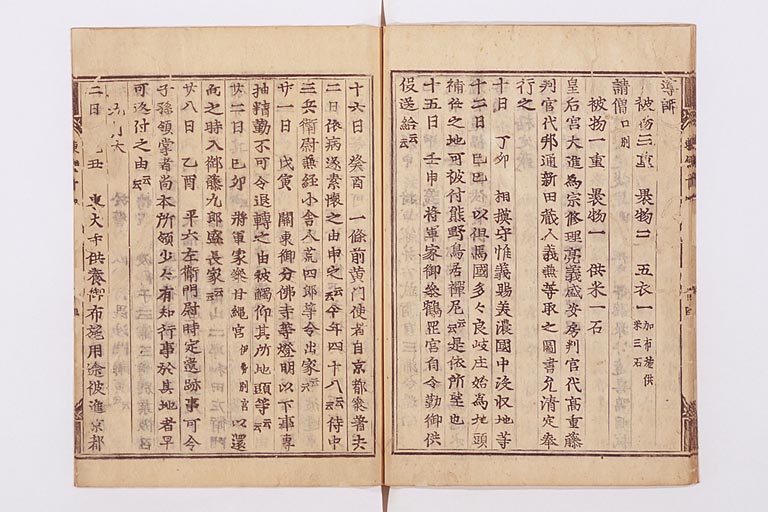 導師
被物三重 裹物二 五衣一 加布施供米三石
請僧口別
被物一重 裹物一 供米一石
皇后宮大進為宗修理亮義盛安房判官代高重藤
判官代邦通新田蔵人義兼等取之圖書允清定奉
行之
十日 丁卯 相撲守惟義賜美濃國中没収地等
十二日 己巳 以但馬國多々良岐庄始為地頭
補任之地可被付熊野鳥居禪尼云云是依所望也
十五日 壬申 将軍家御參鶴罡宮有令勤御供
伇送給云云
十六日 癸酉 一條前黄門使者自京都參著去
二日依病遂素懐之由申之云云今年四十八云云侍中
三兵衛尉兼經小舎人荒四郎等令出家云云
廿一日 戊寅 關東御分佛寺等燈明以下事専
抽精勤不可令退轉之由被觸仰其所地頭等云云
廿二日 己卯 将軍家參甘縄宮伊勢別宮以還
向之時入御藤九郎盛長家云云
廿八日 乙酉 平六左衛門尉時定遺跡事可令
子孫領掌者尚本所領少々有知行事於其地者早
可返付之由云云
二日 己丑 東大寺供養御布施用途被進京都